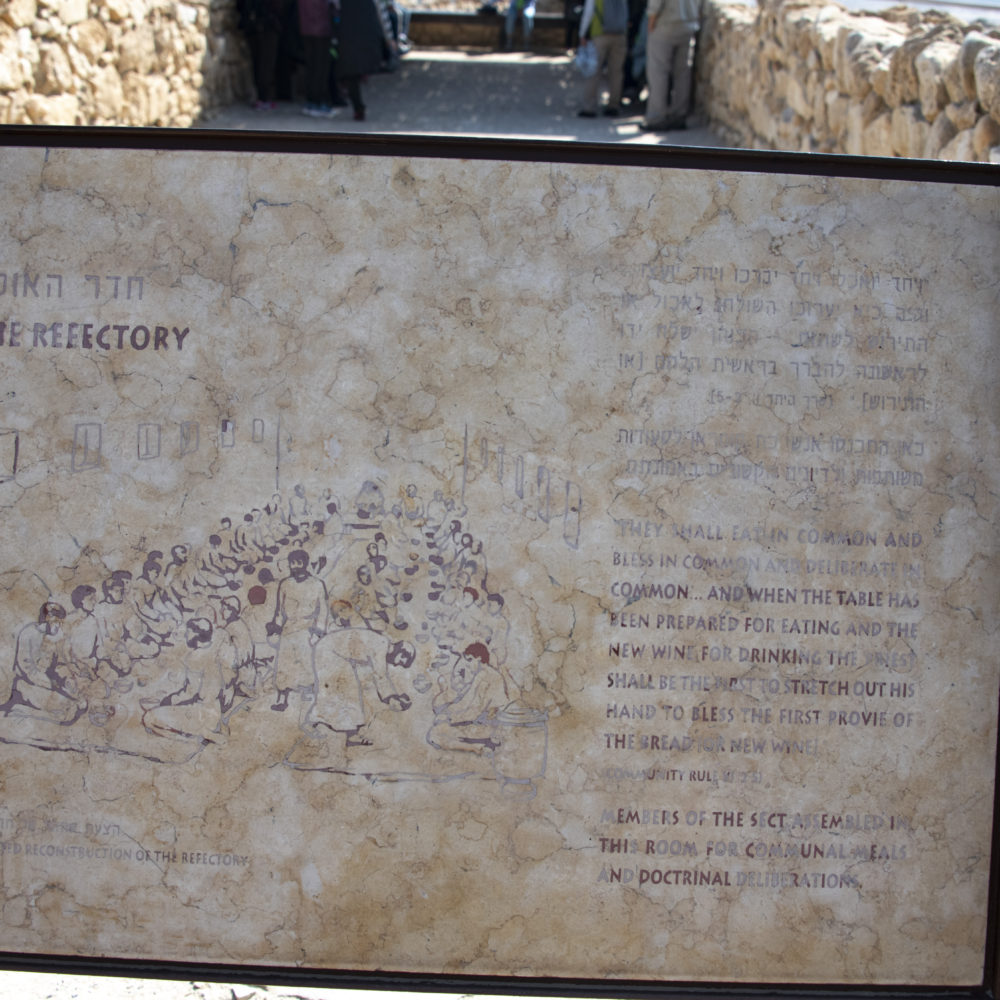 חדר האוכ
THE REFECTORY
ויחד יואכלו ויחד יברכו ויחד יועצו
יערוכו השולחן לאכול או
התירוש לשתות הכוהן ישלח ידו
לראשונה להברך בראשית הלחם [או
התירוש]. (סרך היחד
כאן התכנסו אנשי כת לסעודות
משותפות ולדיונים הקשורים באמונתם
THEY SHALL EAT IN COMMON AND
BLESS IN COMMON AND DELIBERATE IN
COMMON... AND WHEN THE TABLE HAS
BEEN PREPARED FOR EATING AND THE
NEW WINE FOR DRINKING THE PRIEST
SHALL BE THE FIRST TO STRETCH OUT HIS
HAND TO BLESS THE FIRST PROVIE OF
THE BREAD OR NEW WINE
COMMUNITY RULE
MEMBERS OF THE SECT ASSEMBLED IN
THIS ROOM FOR COMMUNAL MEALS
AND DOCTRINAL DELIBERATIONS.
הצעת
RECONSTRUCTION OF THE REFECTORY